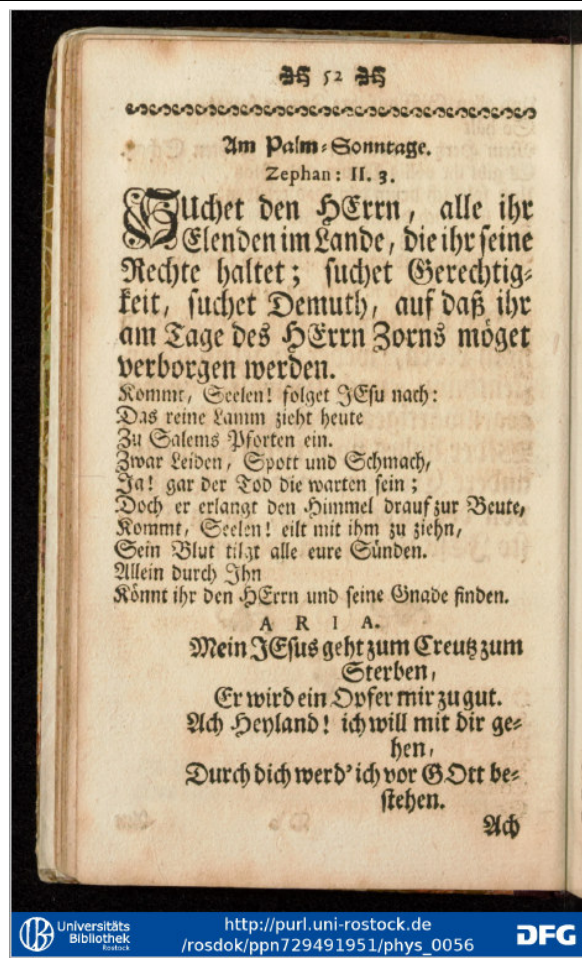 52
Am Palm-Sonntage.
Zephan: II. 3.
SUchet den HErrn, alle ihr
Elenden im Lande, die ihr seine
Rechte haltet; suchet Gerechtig-
keit, suchet Demuth, auf daß ihr
am Tage des HErrn Zorns möget
verborgen werden.
Kommt, Seelen! folget JEsu nach:
Das reine Lamm zieht heute
Zu Salems Pforten ein.
Zwar Leiden, Spott und Schmach,
Ja! gar der Tod die warten sein;
Doch er erlangt den Himmel drauf zur Beute,
Kommt, Seelen! eilt mit ihm zu ziehn,
Sein Blut tilgt alle eure Sünden.
Allein durch Ihn
Könnt ihr den HErrn und seine Gnade finden.
ARIA.
Mein JEsus geht zum Creutz zum
Sterben,
Er wird ein Opfer mir zu gut.
Ach Heyland! ich will mit dir ge-
hen,
Durch dich werd' ich vor GOtt be-
stehen.
Ach
Universitäts
Bibliothek
Rostock
http://purl.uni-rostock.de
/rosdok/ppn729491951/phys_0056
DFG